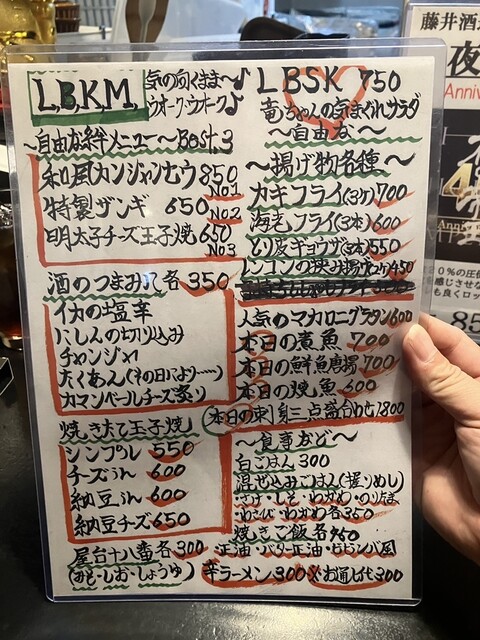 L.B.K.M.
気の向くまま〜♪
ウオーク・ウオーク♪
〜自由な絆メニュー〜Best3
和風カンジャンセウ 850
No1
特製ザンギ 650
No2
明太子チーズ玉子焼 650
No3
酒のつまみ 各350
イカの塩辛
にしんの切り込み
チャンジャ
たくあん(その日により……)
カマンベールチーズ炙り
焼きたて玉子焼
シンプル 550
チーズ 600
納豆 600
納豆チーズ 650
屋台十八番 各300
(みそ・しお・しょうゆ)
LBSK 750
竜ちゃんの気まぐれサラダ
〜自由な〜
〜揚げ物各種〜
カキフライ(3ケ) 700
海老フライ(3本) 600
とり皮ギョウザ(3本) 550
レンコンの挟み揚げ 450
人気のマカロニグラタン 600
本日の煮魚 700
本日の鮮魚唐揚 700
本日の焼魚 600
本日の刺身三点盛合わせ 1800
〜食事など〜
白ごはん 300
混ぜ込みごはん(握りめし)
さけ・しそ・わかめ・のりたま
わさび・わかめ 各350
焼きご飯 各450
正油・バター正油・ビビンバ風
辛ラーメン 300 ※お通し代 300
藤井酒造
夜
Anniv